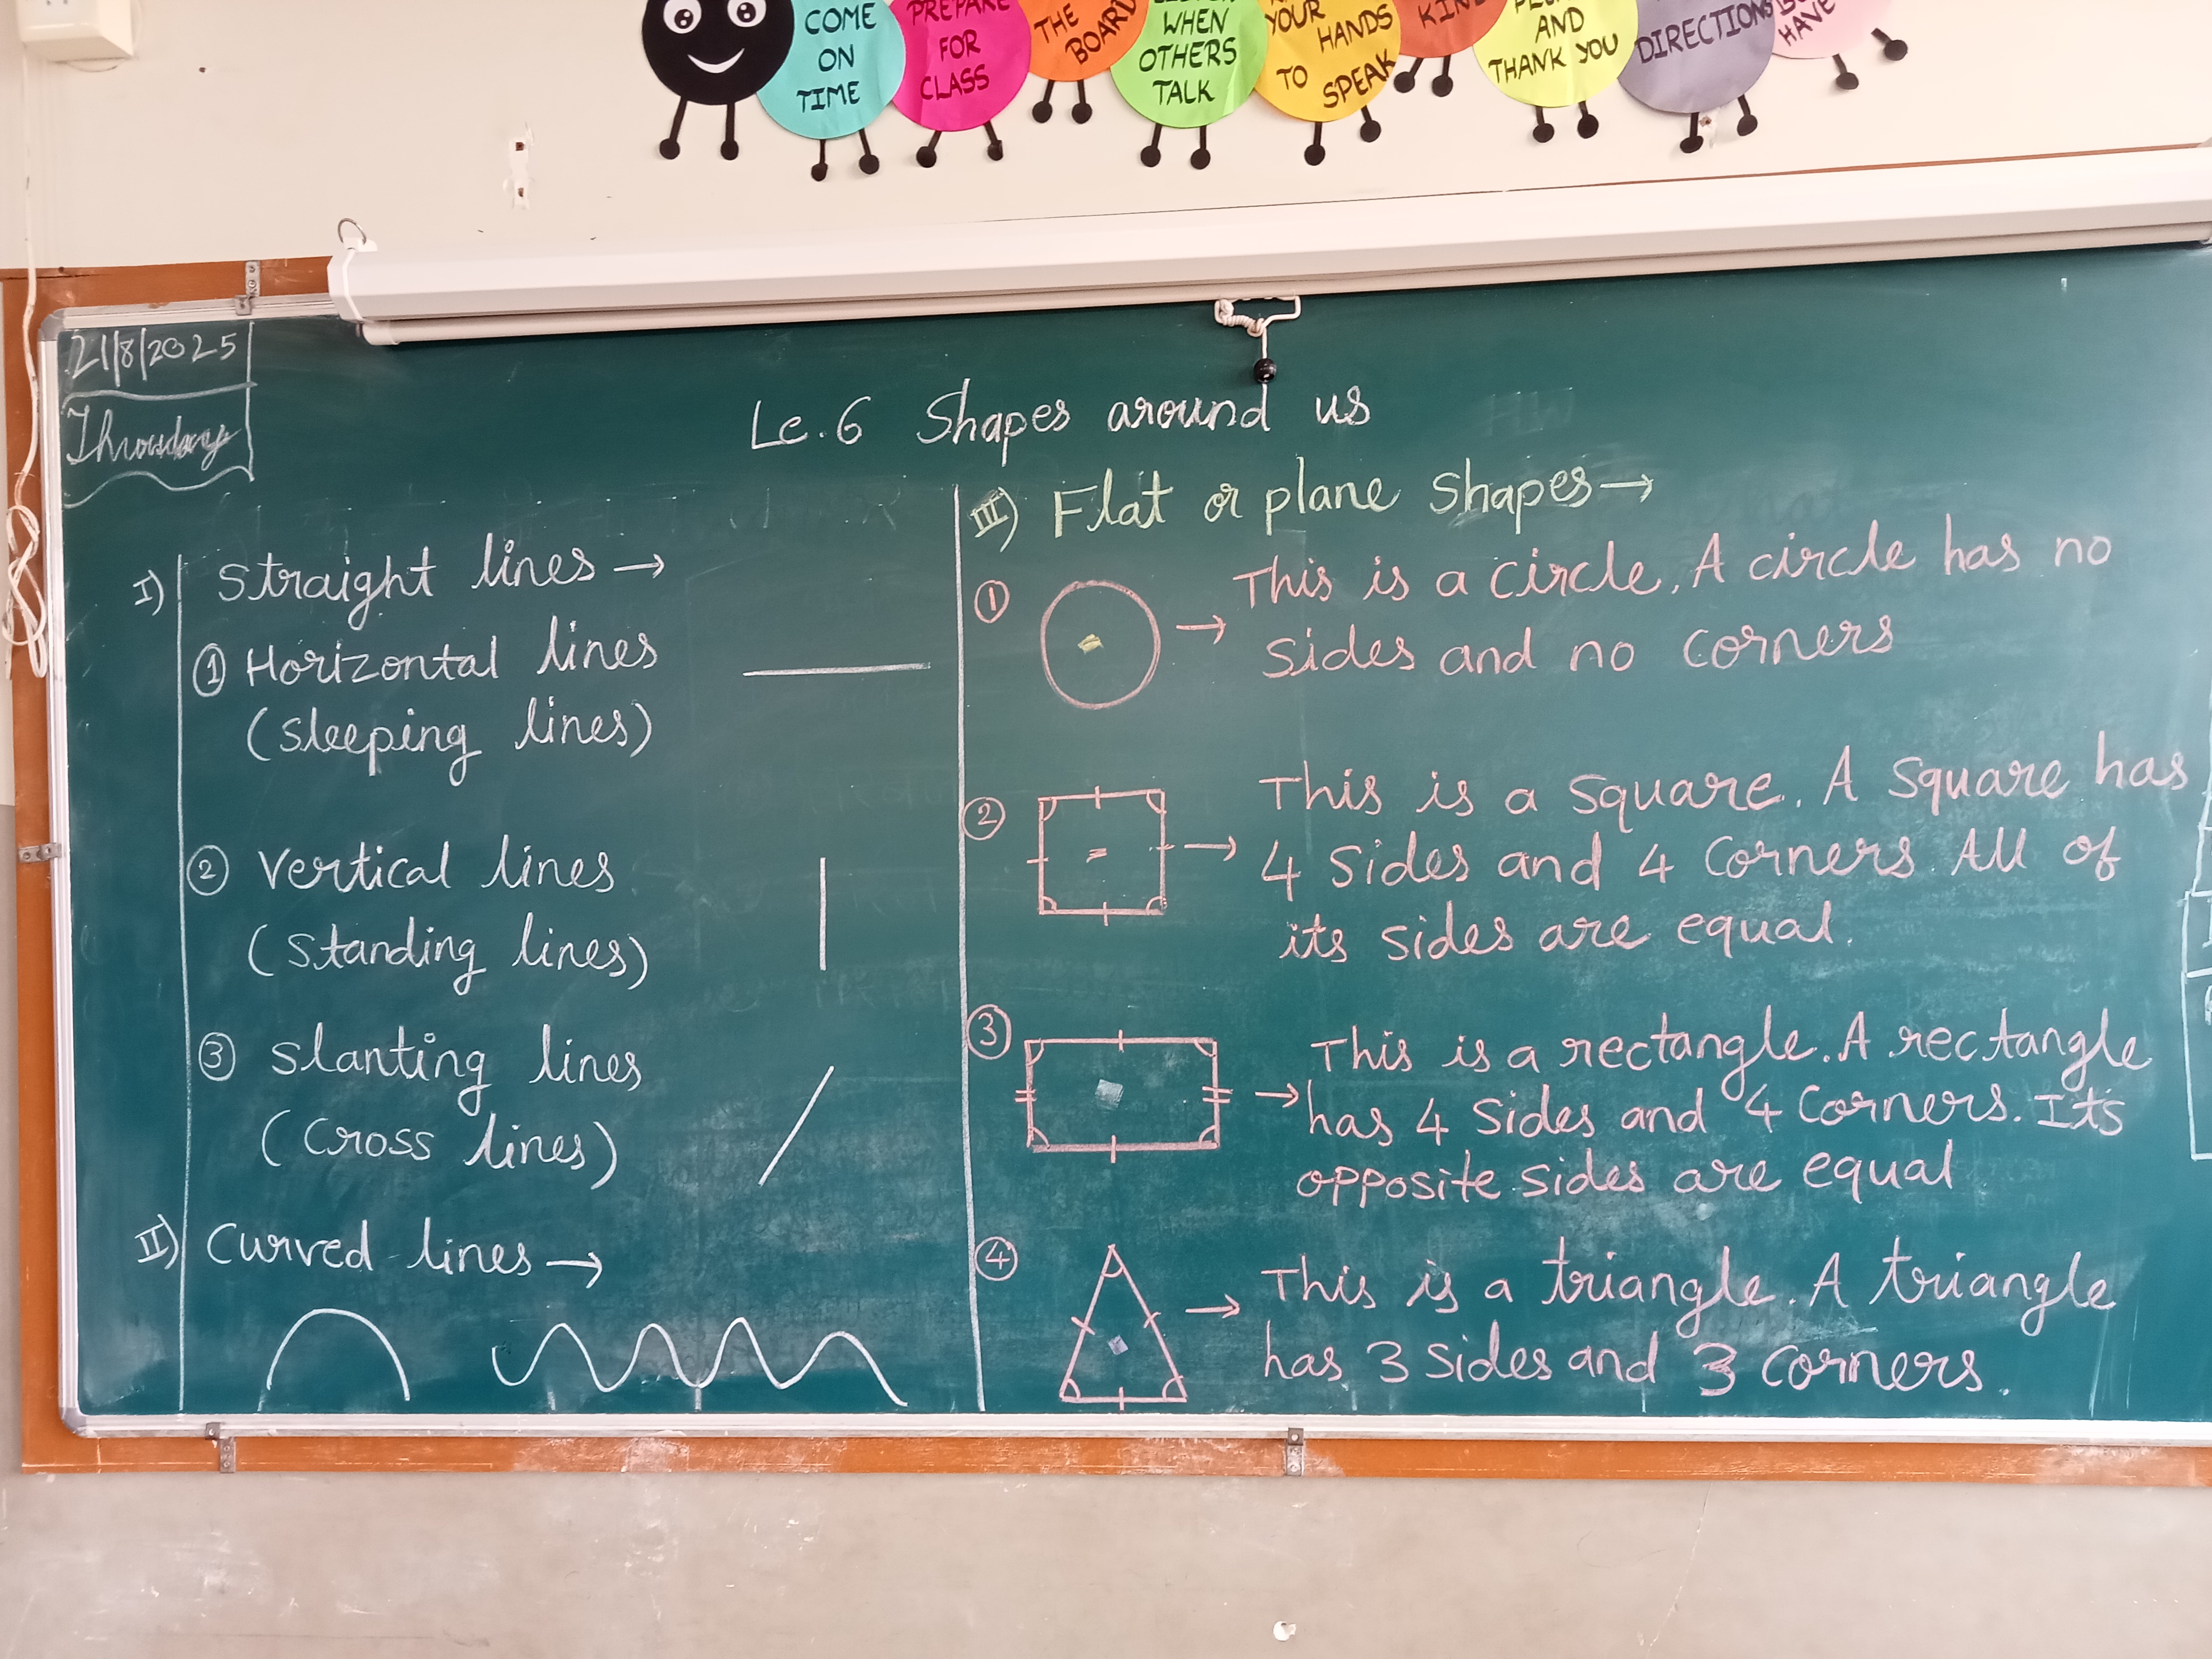 COME
ON
TIME
PREPARE
FOR
CLASS
THE
BOARD
WHEN
OTHERS
TALK
YOUR
HANDS
TO
SPEAK
AND
THANK YOU
DIRECTIONS
HAVE
21/8/2025
Thursday
Le. 6 Shapes around us
I) Straight lines →
① Horizontal lines
(sleeping lines)
② Vertical lines
(Standing lines)
③ Slanting lines
(Cross lines)
II) Curved lines →
III) Flat or plane shapes →
① → This is a circle. A circle has no
sides and no corners
② → This is a square. A square has
4 sides and 4 corners All of
its sides are equal.
③ → This is a rectangle. A rectangle
has 4 sides and 4 corners. Its
opposite sides are equal
④ → This is a triangle. A triangle
has 3 sides and 3 corners.